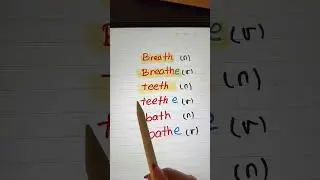 Breath (n)
Breathe (v)
teeth (n)
teethe (v)
bath (n)
bathe (v)